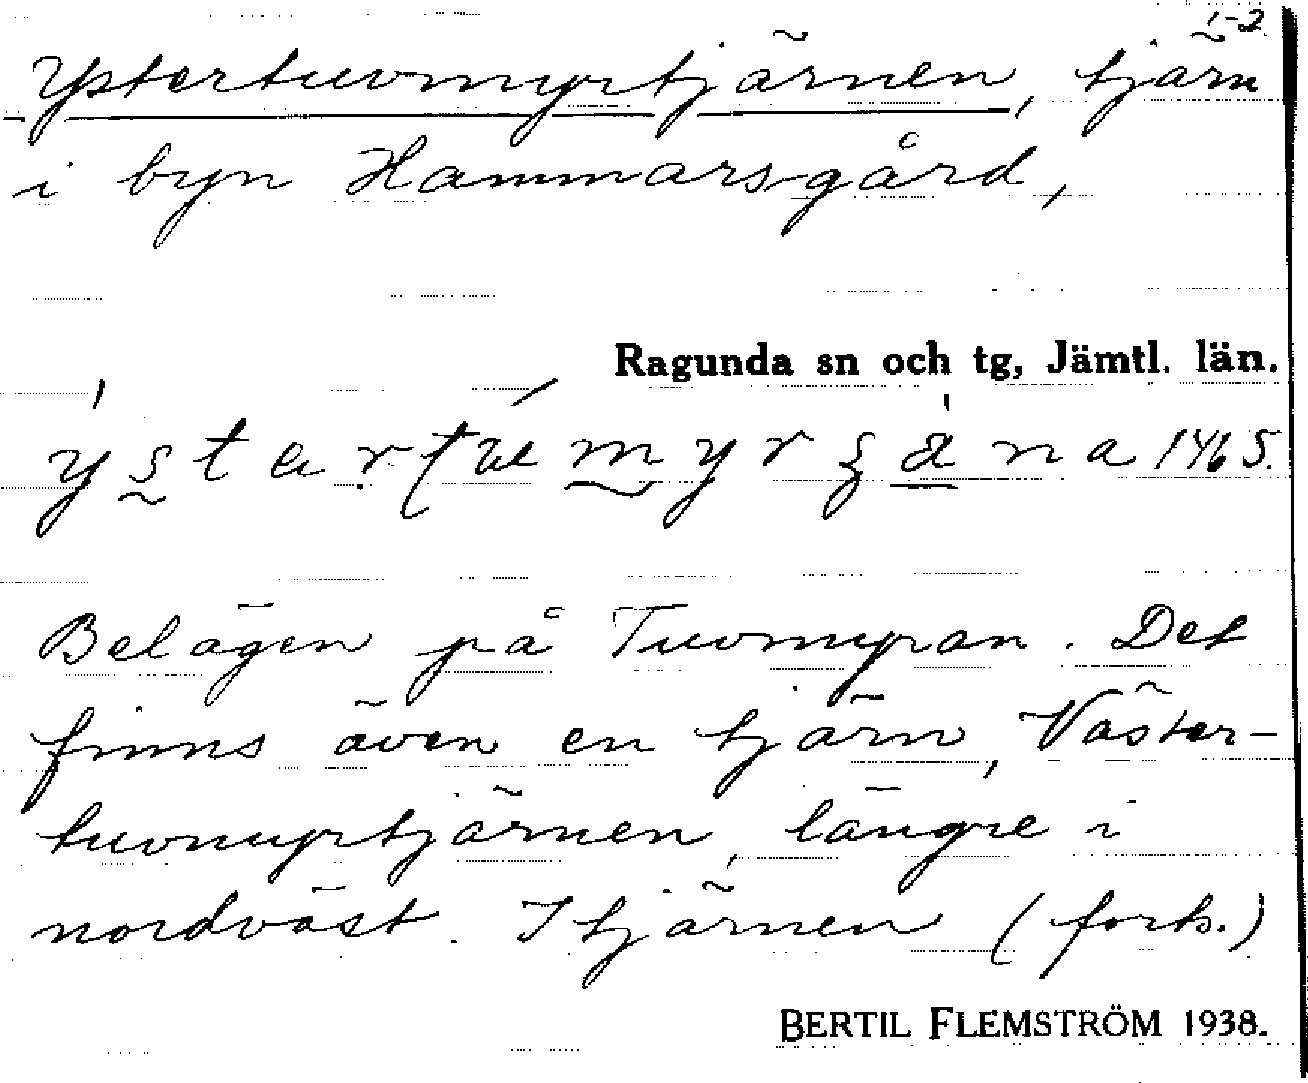 1-2
Ystertuvmyrtjärnen, tjärn
i byn Hammarsgård,
Ragunda sn och tg, Jämtl. län.
Belägen på Tuvmyran. Det
finns även en tjärn, Väster-
tuvmyrtjärnen, längre i
nordväst. I tjärnen (forts.)
BERTIL FLEMSTRÖM 1938.